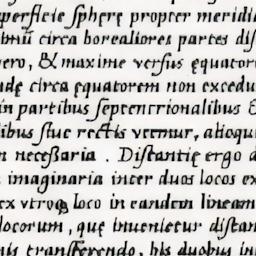 perficie sphęrę propter meridi
imū circa borealiores partes dis
ero, & maxime versus ęquator
udę circa ęquatorem non excedu
in partibus septentrionalibus &
libus siue rectis vtemur, alioqui
n necessaria . Distantię ergo d
imaginaria inter duos locos ex
ex vtroq; loco in eandem lineam
locorum, quę inuenietur distan
nis transferendo, his duobus in